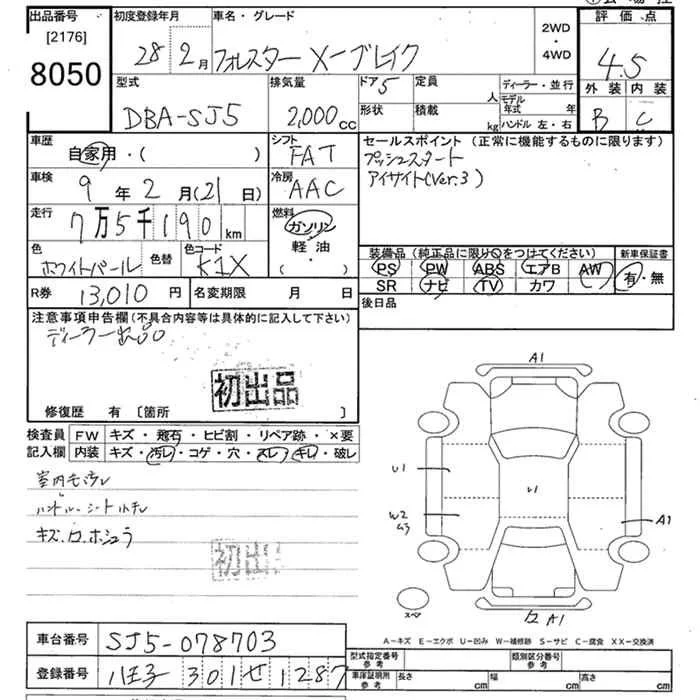 出品番号
[2176]
8050
初度登録年月
28 2月
車名・グレード
フォレスター X-ブレイク
2WD
・
4WD
評価点
4.5
外装 内装
B C
型式
DBA-SJ5
排気量
2,000cc
ドア 5
形状
定員
人
積載
kg
ディーラー・並行
モデル年式 年
ハンドル 左・右
車歴
自家用・( )
シフト
FAT
車検
9年2月(21日)
冷房
AAC
走行
7万5千190km
燃料
ガソリン
軽油
( )
色
ホワイトパール
色替
色コード
K1X
R券 13,010円
名変期限 月 日
セールスポイント(正常に機能するものに限ります)
プッシュスタート
アイサイト(Ver.3)
装備品(純正品に限り○をつけてください)
PS PW ABS エアB AW
SR ナビ TV カワ
新車保証書
有・無
後日品
注意事項申告欄(不具合内容等は具体的に記入して下さい)
ディーラー出品
初出品
修復歴 有 [箇所 ]
検査員記入欄
FW キズ・飛石・ヒビ割・リペア跡・×要
内装 キズ・汚レ・コゲ・穴・スレ・キレ・破レ
キズ
初出品
A1
U1
U1
W2
A1
A1
スペア
A-キズ E-エクボ U-凹み W-補修跡 S-サビ C-腐食 XX-交換済
車台番号 SJ5-078703
登録番号 八王子 301 せ 1287
型式指定番号 参考
類別区分番号 参考
車庫証明所 参考
長さ cm 幅 cm 高さ cm